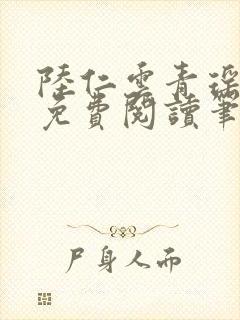 陸仁雲青瑤
免費閱讀筆
尸身人而